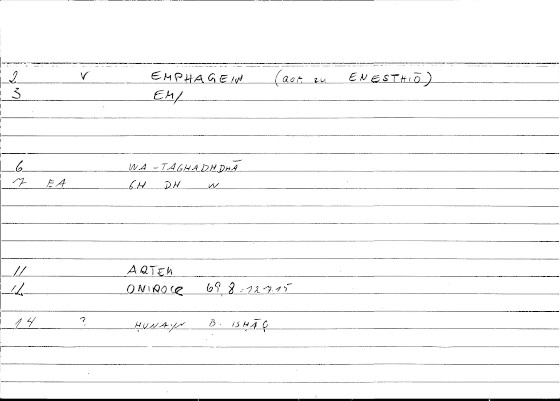 2 V EMPHAGEIN (aor. zu ENESTHIŌ)
3 EM/
6 WA-TAGHADHDHĀ
7 EA GH DH W
11 ARTEM
12 ONIROCR 69,8 = 127.15
14 ? ḤUNAYN B. ISḤĀQ